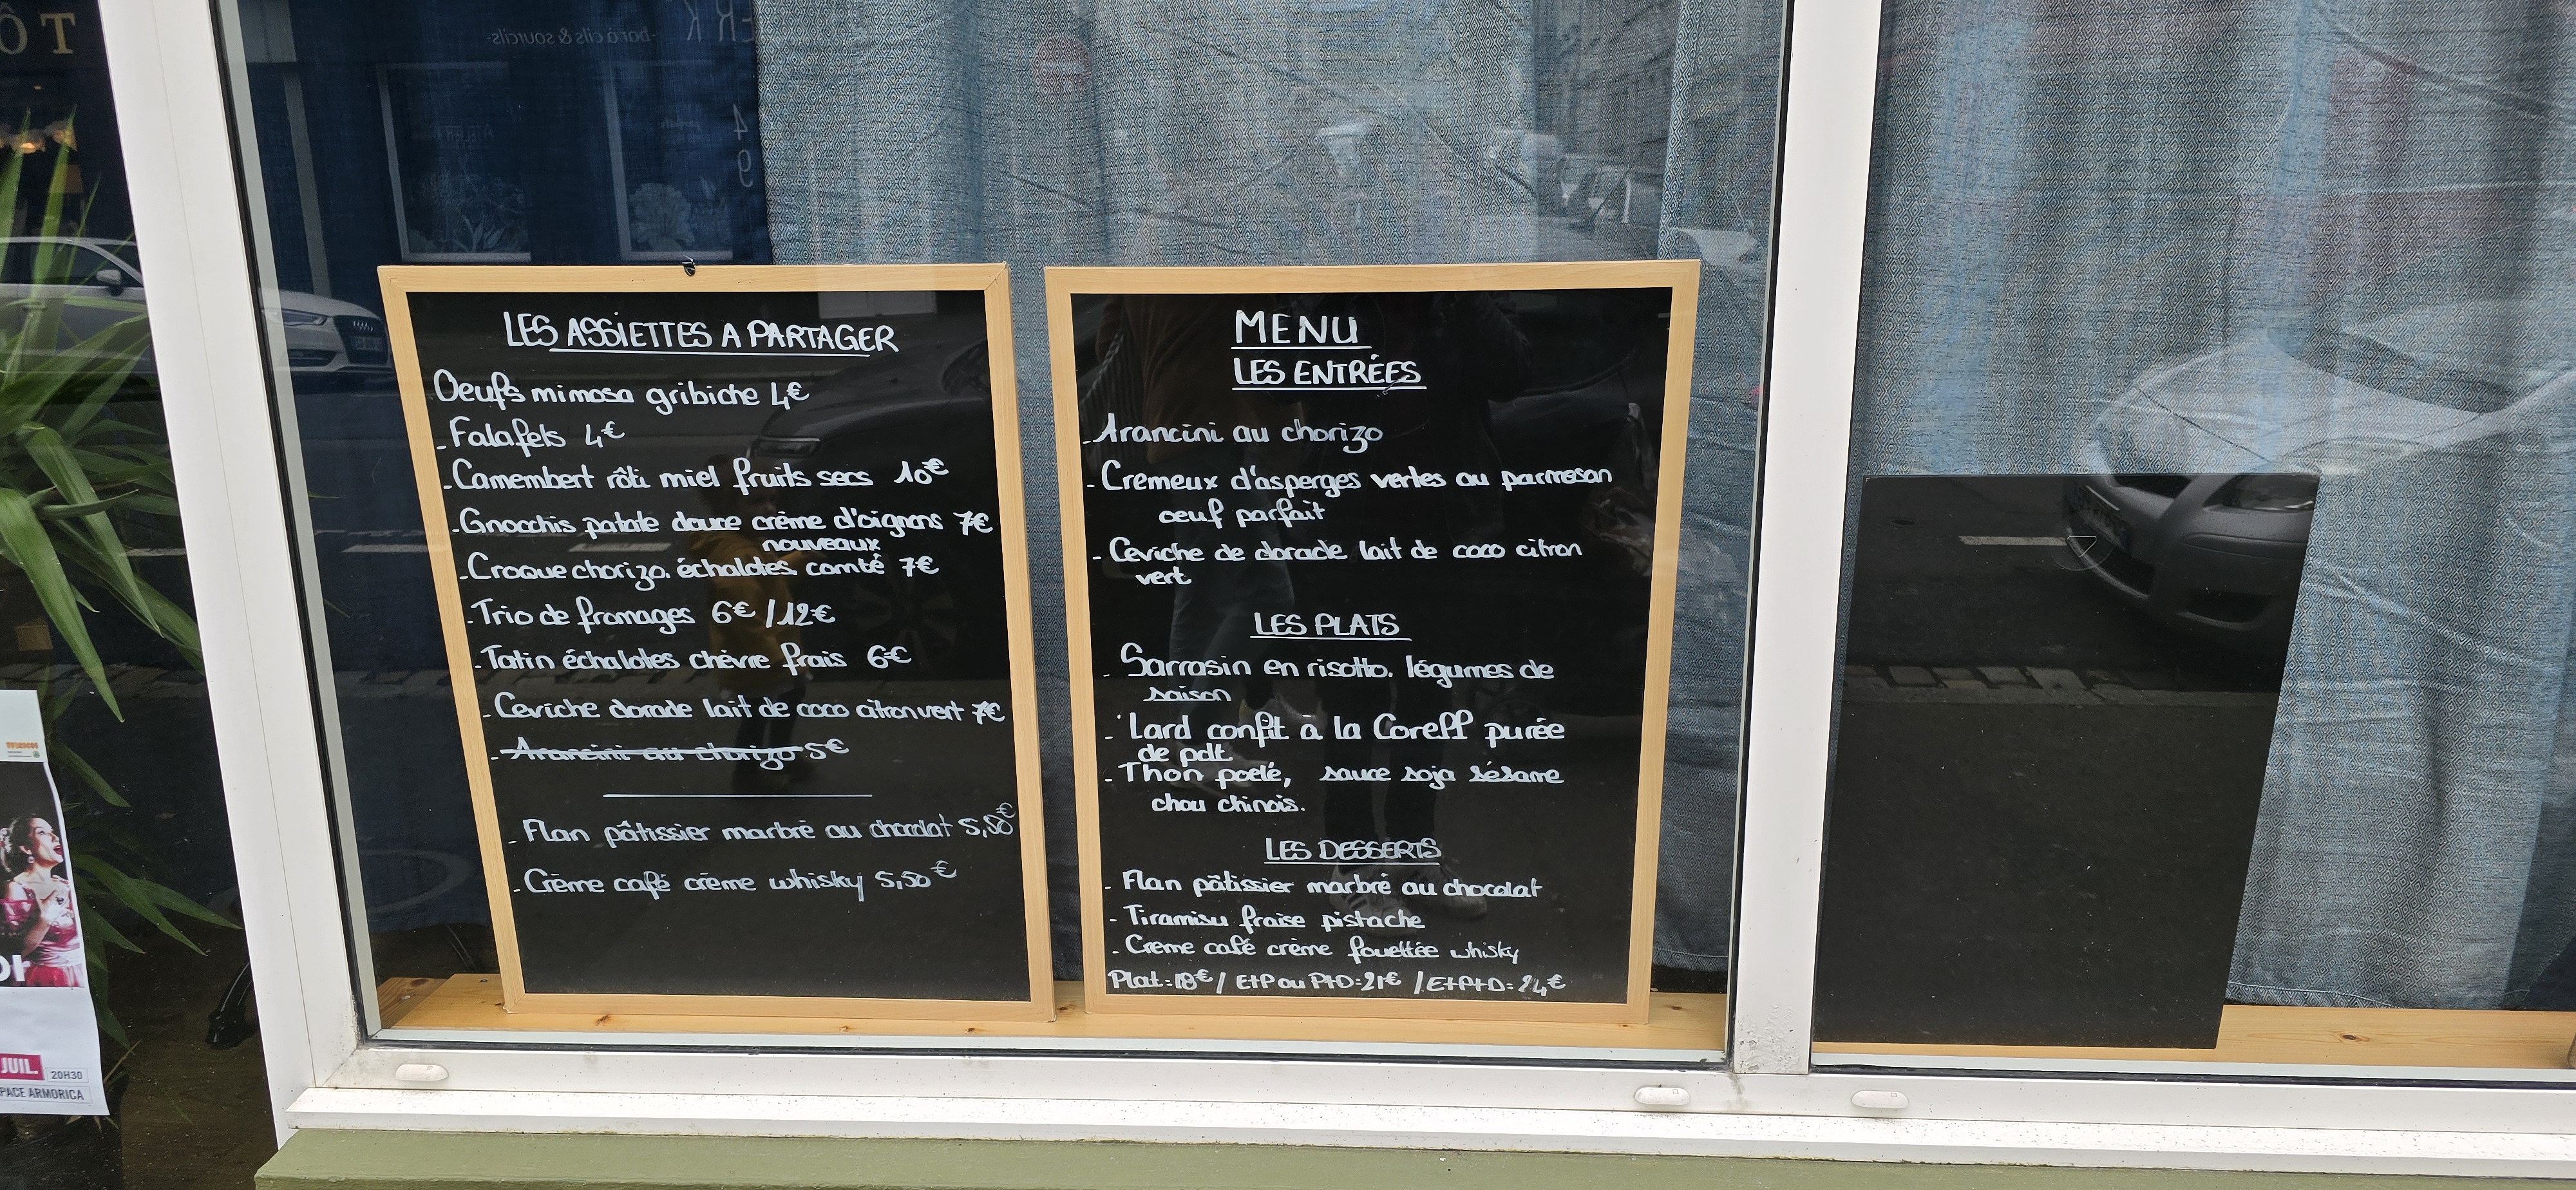 TÔ
bar à cils & sourcils
49
LES ASSIETTES A PARTAGER
Oeufs mimosa gribiche 4€
- Falafels 4€
- Camembert rôti miel fruits secs 10€
- Gnocchis patate douce crème d'oignons 7€
nouveaux
- Croque chorizo. échalotes comté 7€
- Trio de fromages 6€ / 12€
- Tatin échalotes chèvre frais 6€
- Ceviche dorade lait de coco citron vert 7€
- Arancini au chorizo 5€
- Flan pâtissier marbré au chocolat 5,50€
- Crème café crème whisky 5,50€
MENU
LES ENTRÉES
- Arancini au chorizo
- Cremeux d'asperges vertes au parmesan
oeuf parfait
- Ceviche de dorade lait de coco citron
vert
LES PLATS
- Sarrasin en risotto. légumes de
saison
- Lard confit à la Coreff purée
de pdt
- Thon poelé, sauce soja sésame
chou chinois.
LES DESSERTS
- Flan pâtissier marbré au chocolat
- Tiramisu fraise pistache
- Creme café crème fouettée whisky
Plat = 18€ / E+P ou P+D = 21€ / E+P+D = 24€
JUIL. 20H30
PACE ARMORICA